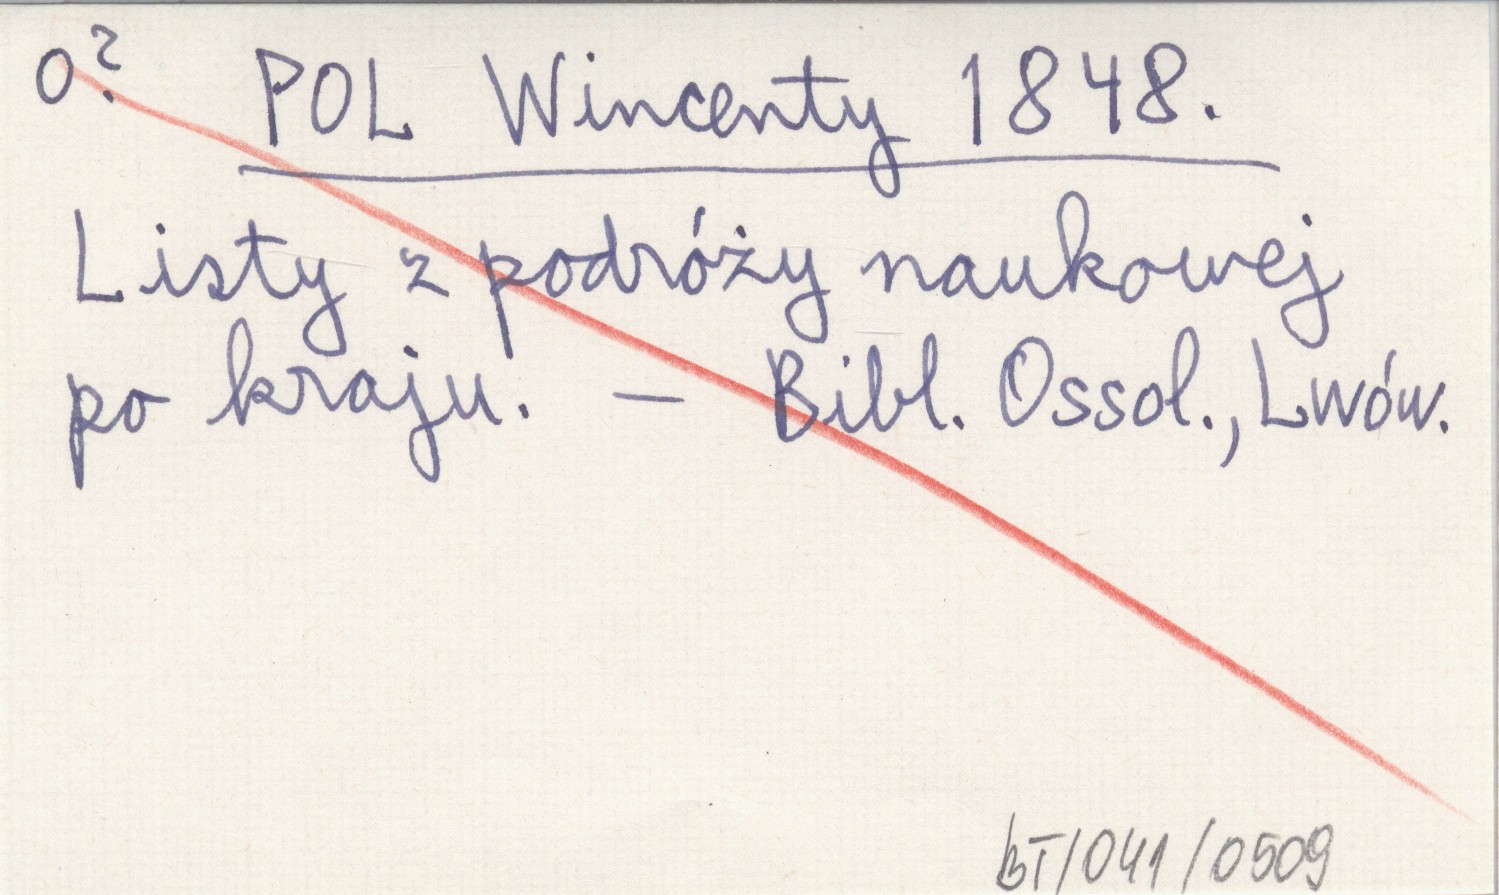 o? POL Wincenty 1848.
Listy z podróży naukowej
po kraju. — Bibl. Ossol., Lwów.
BT/041/0509